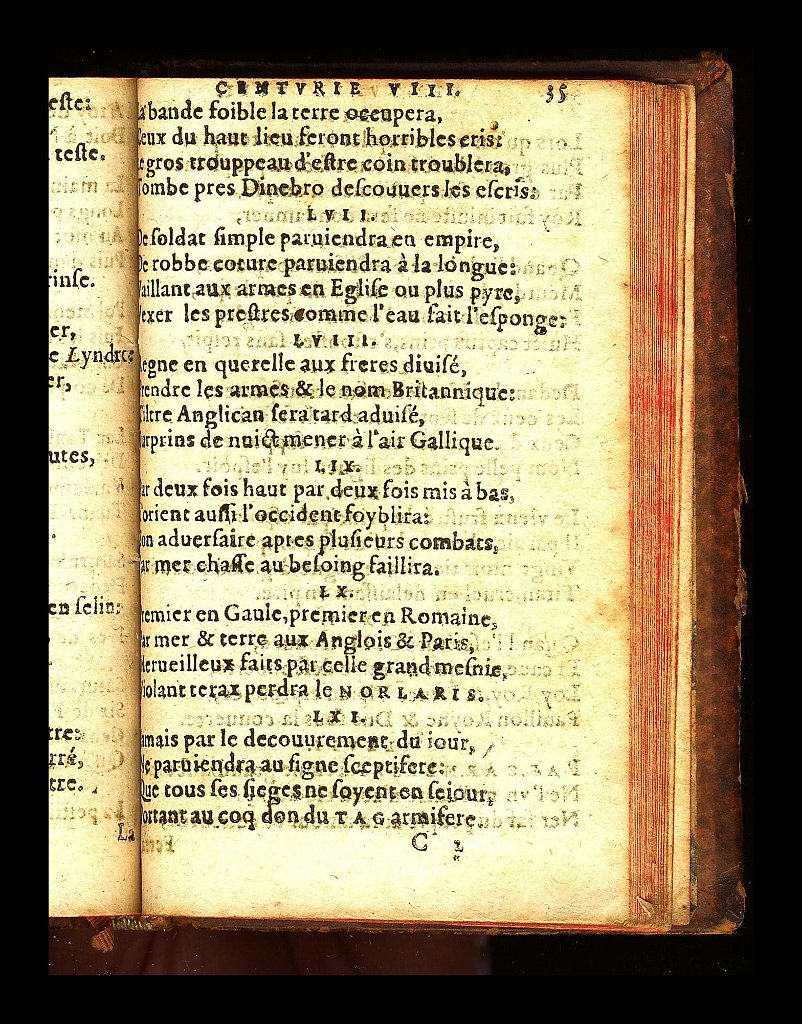 eſte:
teſte.
rinſe.
er,
e Lyndre:
er,
utes,
en ſelin:
tre:
rré,
tre.
La
CENTVRIE VIII. 35
La bande foible la terre occupera,
Ceux du haut lieu feront horribles cris:
Le gros trouppeau d'eſtre coin troublera,
Tombe pres Dinebro deſcouuers les eſcris:
LVII.
De ſoldat ſimple paruiendra en empire,
De robbe coture paruiendra à la longue:
Vaillant aux armes en Egliſe ou plus pyre,
Vexer les preſtres comme l'eau fait l'eſponge:
LVIII.
Regne en querelle aux freres diuiſé,
Prendre les armes & le nom Britannique:
Tiltre Anglican ſera tard aduiſé,
Surprins de nuict mener à l'air Gallique.
LIX.
Par deux fois haut par deux fois mis à bas,
L'orient auſſi l'occident foyblira:
Son aduerſaire apres pluſieurs combats,
Par mer chaſſe au beſoing faillira.
LX.
Premier en Gaule, premier en Romaine,
Par mer & terre aux Anglois & Paris,
Merueilleux faits par celle grand meſnie,
Violant terax perdra le NORLARIS.
LXI.
Iamais par le decouurement du iour,
Ne paruiendra au ſigne ſceptifere:
Que tous ſes ſieges ne ſoyent en ſeiour,
Portant au coq don du TAG armifere
C